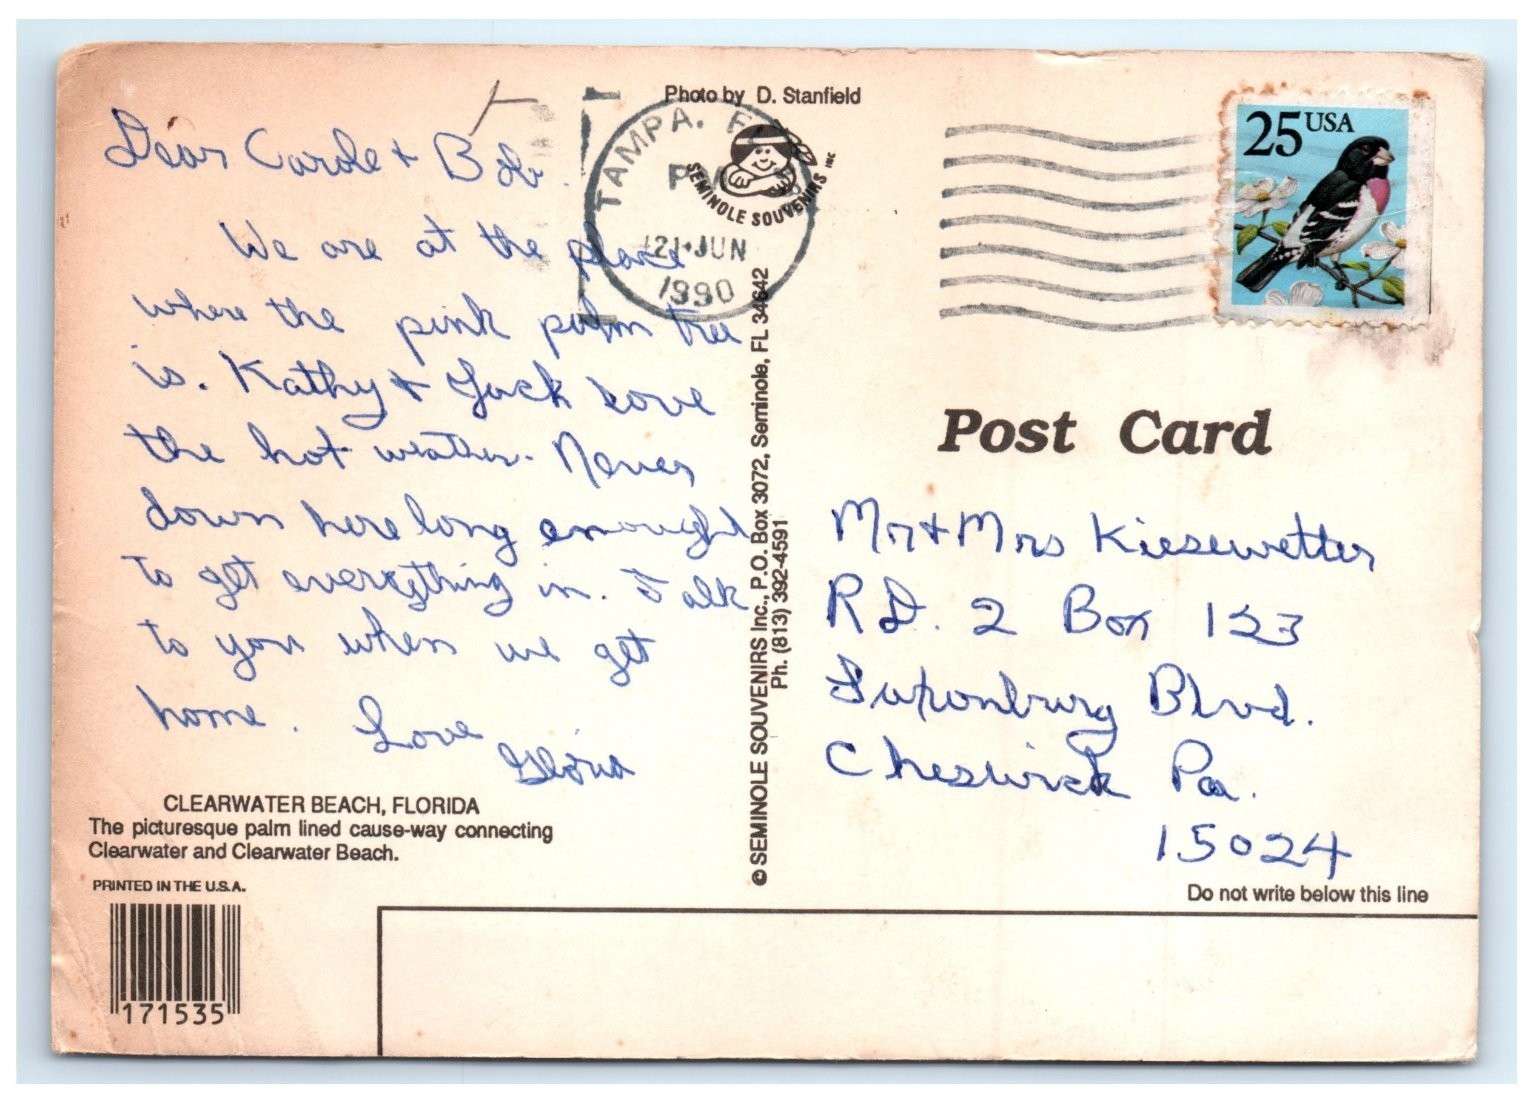 Photo by D. Stanfield
Dear Carole + Bob.
We are at the place
where the pink palm tree
is. Kathy + Jack love
the hot weather. Never
down here long enought
to get everything in. Talk
to you when we get
home. Love
Gloria
CLEARWATER BEACH, FLORIDA
The picturesque palm lined cause-way connecting
Clearwater and Clearwater Beach.
PRINTED IN THE U.S.A.
171535
TAMPA, FL
PM
21 JUN
1990
SEMINOLE SOUVENIRS INC
© SEMINOLE SOUVENIRS Inc., P.O. Box 3072, Seminole, FL 34642
Ph. (813) 392-4591
25 USA
Post Card
Mr + Mrs Kiesewetter
RD. 2 Box
Blvd.
Cheswick Pa.
15024
Do not write below this line